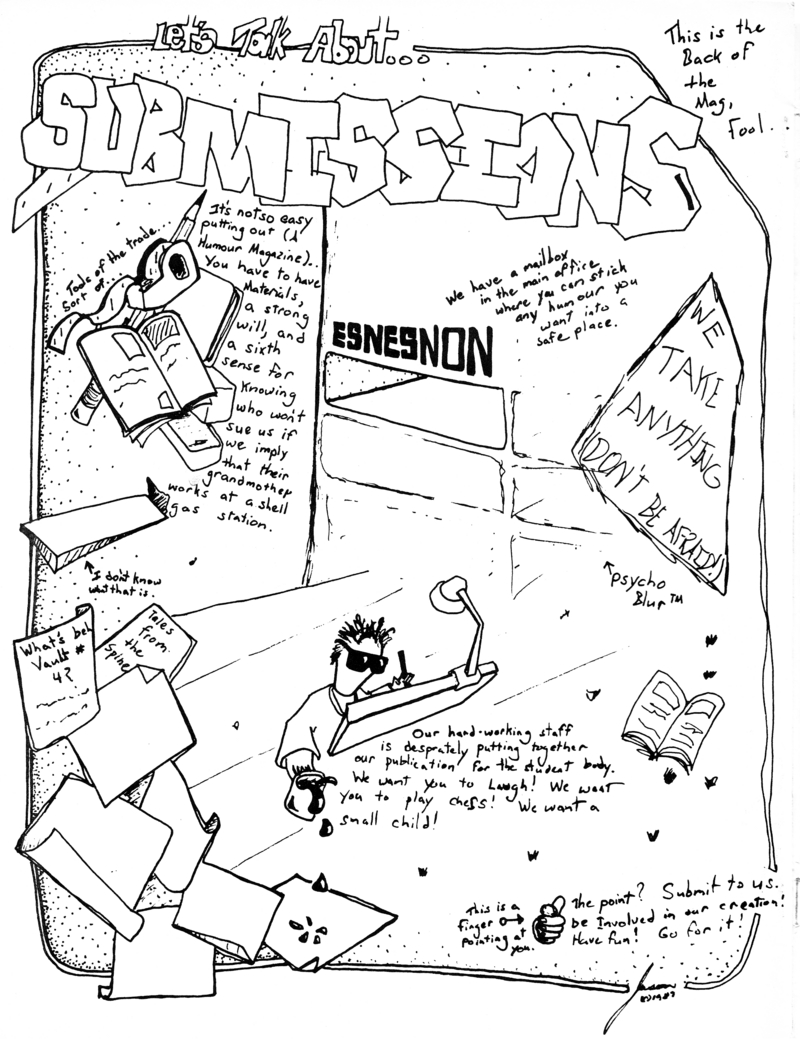 Let's Talk About...
SUBMISSIONS
This is the
Back of
the
Mag,
Fool...
Tools of the trade...
Sort of...
It's not so easy
putting out (A
Humour Magazine)...
You have to have
Materials,
a strong
will, and
a sixth
sense for
Knowing
who won't
sue us if
we imply
that their
grandmother
works at a shell
gas station.
We have a mailbox
in the main office
where you can stick
any humour you
want into a
safe place.
ESNESNON
WE
TAKE
ANYTHING
(DON'T BE AFRAID!)
Psycho
Blur™
I don't know
what that is.
What's beh
Vault #
4?
Tales
from
the
Spine
Our hard-working staff
is desprately putting together
our publication for the student body.
We want you to Laugh! We want
you to play chess! We want a
small child!
This is a
finger
pointing at
you.
The point? Submit to us.
be Involved in our creation!
Have fun! Go for it!
Jason